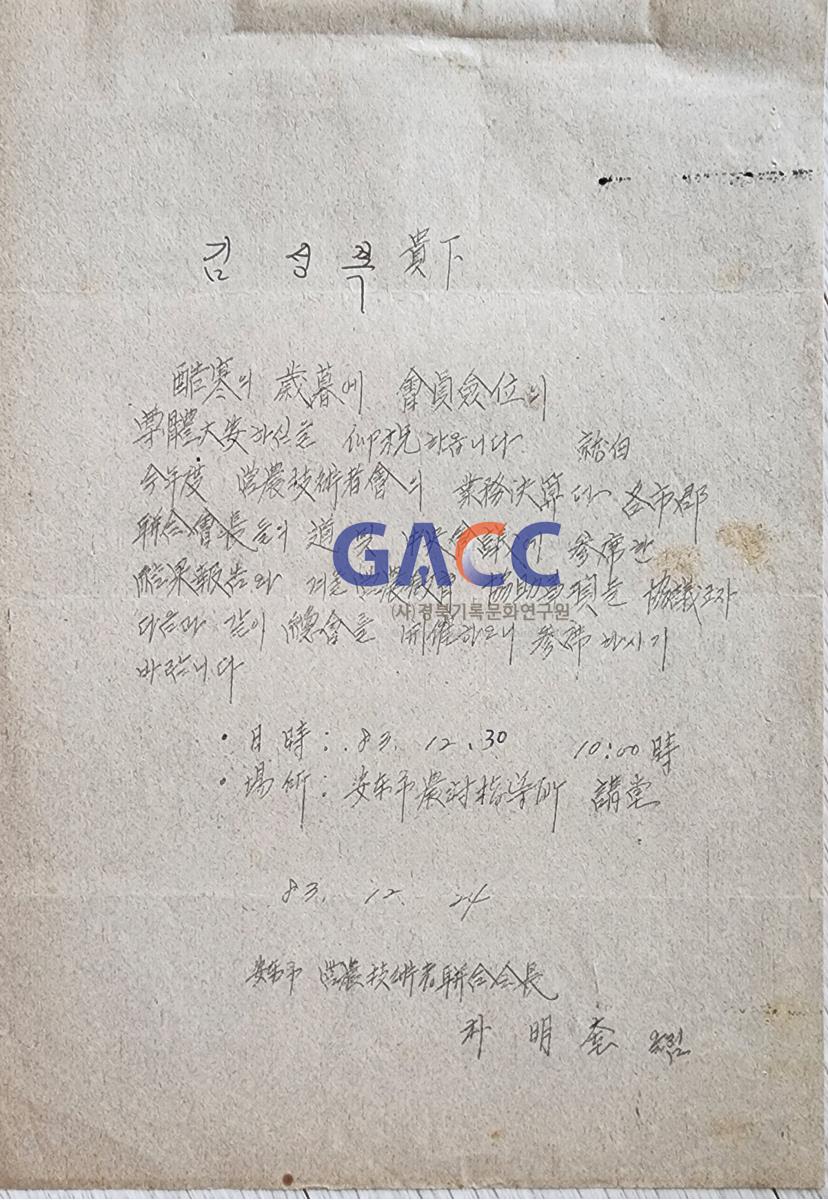 김 성 복 貴下
酷寒의 歲暮에 會員僉位의
尊體大安하심을 仰祝하옵니다.
今年度 營農技術者會의 業務決算다 各市郡
聯合會長들의 道 및 會議에 參席한
結果報告와 겨울營農敎育 協助事項을 協議코자
다음과 같이 總會를 開催하오니 參席하시기
바랍니다
GACC
(사)경북기록문화연구원
• 日時 : 83. 12. 30 10:00時
• 場所 : 安東市農村指導所 講堂
83. 12. 24
安東市 營農技術者聯合会長
朴 明 올림